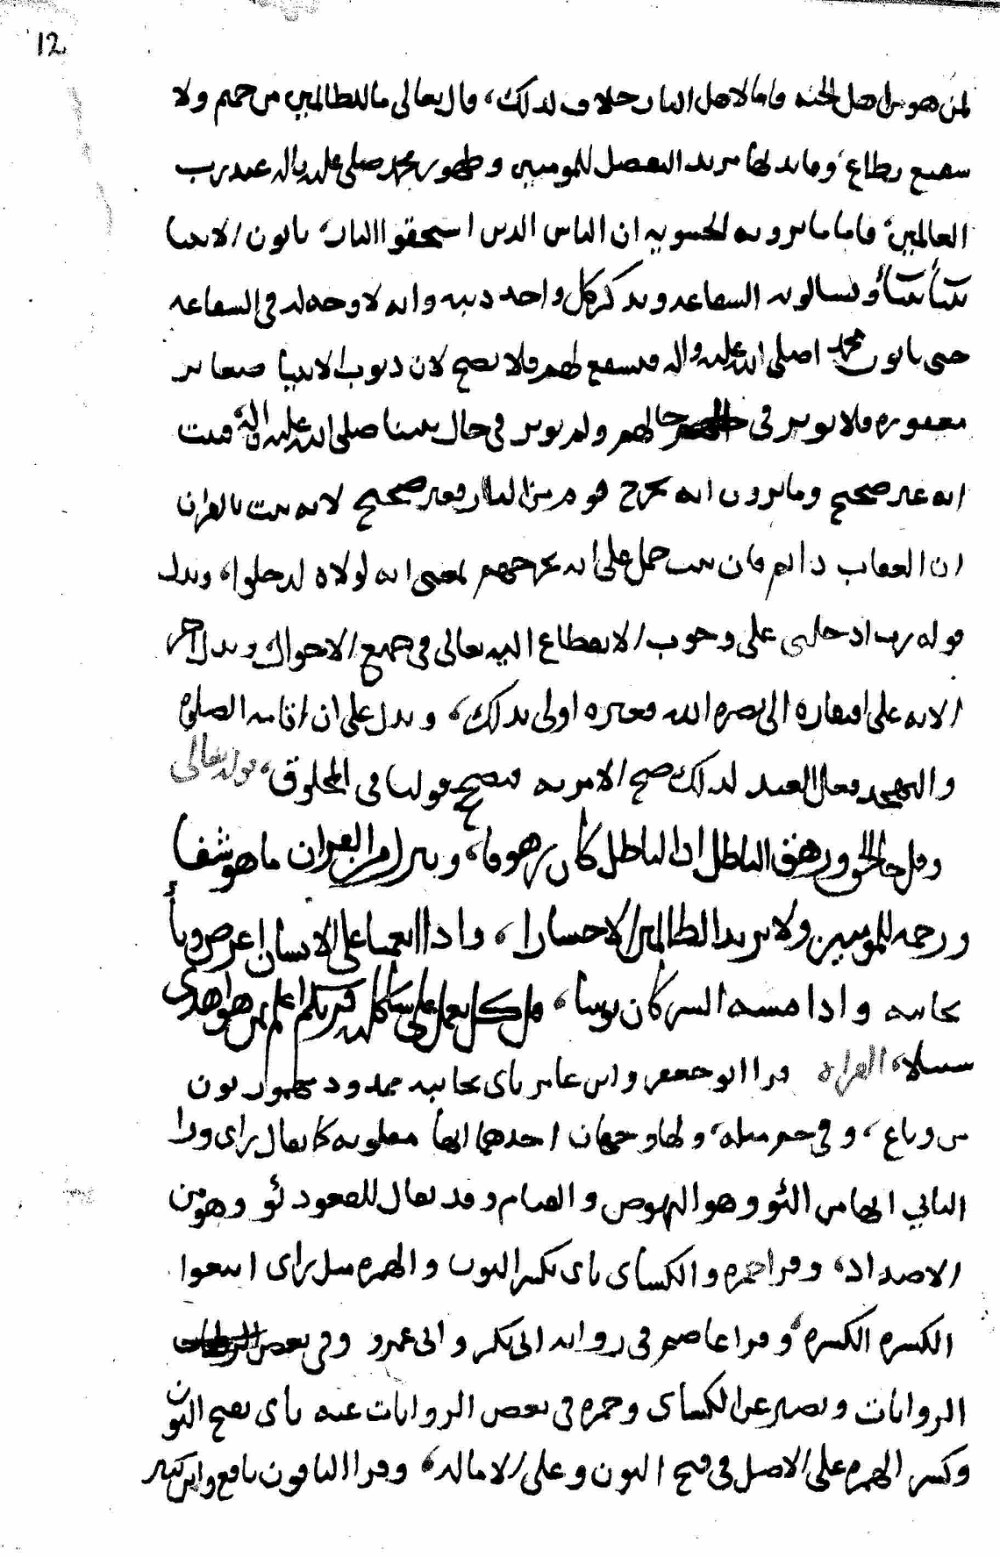 12
لمن هو من اهل الجنه فاما لاهل النار خلاف لذلك، قال تعالى ما للظالمين من حميم ولا
شفيع يطاع، وفايدتها مزيد التفضل للمومنين وظهور محمد صلى عليه واله عند رب
العالمين، فاما ما يرويه الحشويه ان الناس الذين استحقوا النار، ياتون الانبيا
نبيا نبيا ويسالونه الشفاعه ويذكر كل واحد ذنبه وانه لا وجه له في الشفاعه
حتى ياتون محمد اصلى الله عليه واله فيشفع لهم فلا يصح لان ذنوب الانبيا صغاير
مغفوره فلا توثر في حالهم ولم توثر في حال نبينا صلى الله عليه واله فثبت
انه غير صحيح وما يروون انه يخرج قوم من النار فغير صحيح لانه يثبت بالقران
ان العقاب دايم فان ثبت حمل على انه يخرجهم بمعنى انه لولاه لدخلوا، ويدل
قوله رب ادخلنى على وجوب الانقطاع اليه تعالى في جميع الاحوال ويدل اخر
الايه على افتقاره الى نصره الله فغيره اولى بذلك، ويدل على ان اقامه الصلوه
والتهجد فعل العبد لذلك صح الامر به فيصح قولنا في المخلوق، قوله تعالى
وقل جا الحق وزهق الباطل ان الباطل كان زهوقا، وننزل من القران ما هو شفا
ورحمه للمومنين ولا يزيد الظالمين الا خسارا، واذا انعمنا على الانسان اعرض ونأ
بجانبه واذا مسه الشر كان يوسا، قل كل يعمل على شاكلته فربكم اعلم بمن هو اهدى
سبيلا، القراه قرا ابو جعفر وابن عامر ناى بجانبه ممدود مهموز بوزن
وباع، وفي حم مثله، ولها وجهان احدهما انها مقلوبه كما يقال راى ورا
الثاني انها من النوو وهو النهوض والقيام وقد يقال للقعود نو وهو من
الاضداد، وقرا حمزه والكساى ناى بكسر النون والهمزه مثل راى اتبعوا
الكسره الكسره، وقرا عاصم في روايه ابي بكر وابي عمرو وفي بعض
الروايات ونصير عن الكساى وحمزه في بعض الروايات عنه ناى بفتح النون
وكسر الهمزه على الاصل في فتح النون وعلى الاماله، وقرا الباقون نافع وابن كثير